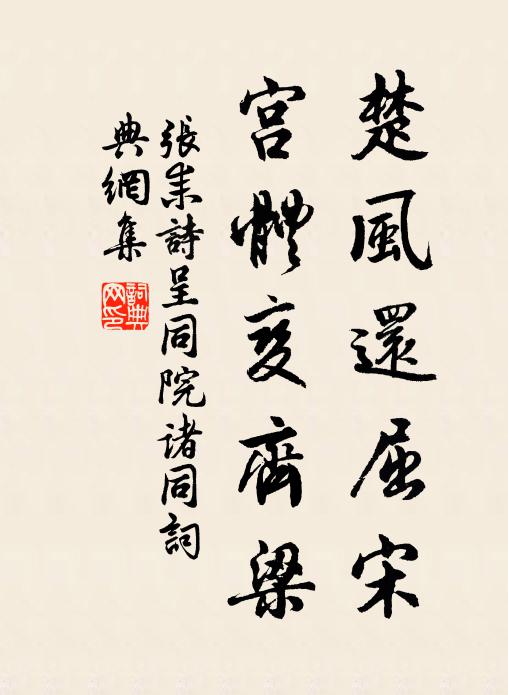 楚風還屈宋
宮體變齊梁
張耒詩呈同院諸同詞
典網集
詞典網印